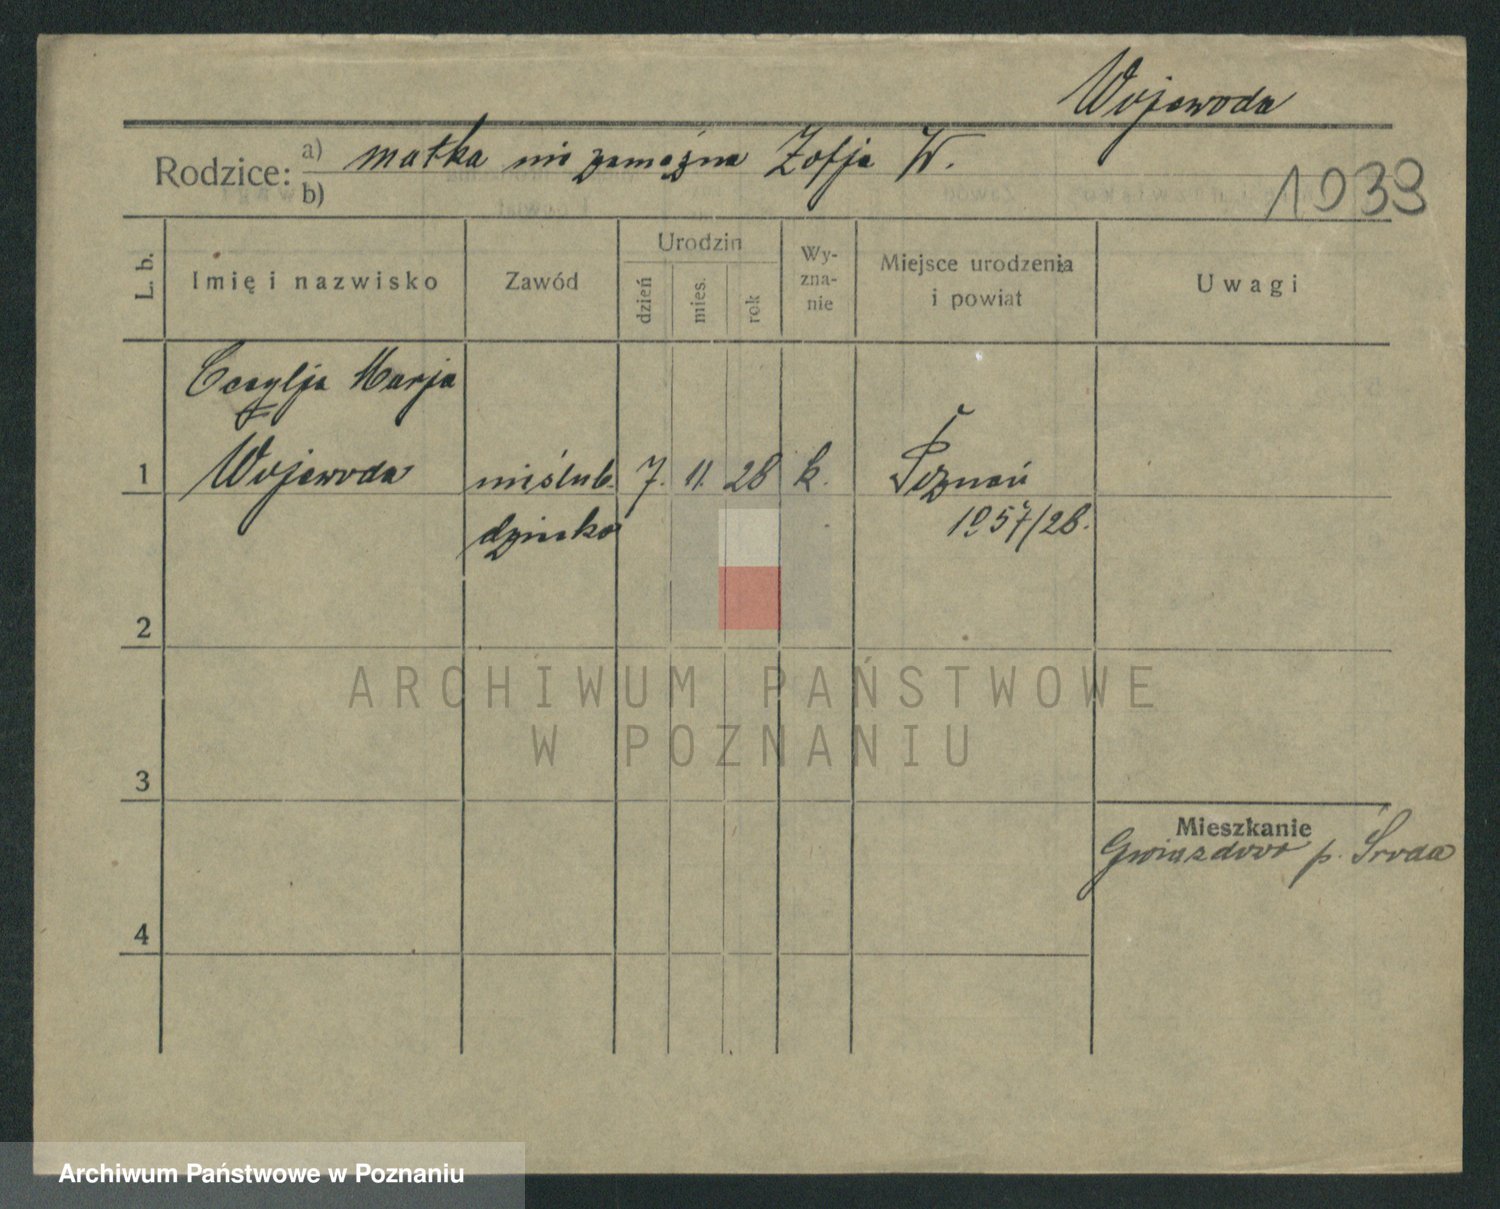 Wojewoda
Rodzice: a) matka nie zamężna Zofja W.
b)
1939
L. b.
Imię i nazwisko
Zawód
Urodzin
dzień
mies.
rok
Wy-
zna-
nie
Miejsce urodzenia
i powiat
Uwagi
Cecylja Marja
1 Wojewoda nieślub. 7. 11. 28 k. Poznań
dziecko 1957/28.
2
3
Mieszkanie
Gwiazdowo p. Środa
4
ARCHIWUM PAŃSTWOWE
W POZNANIU
Archiwum Państwowe w Poznaniu